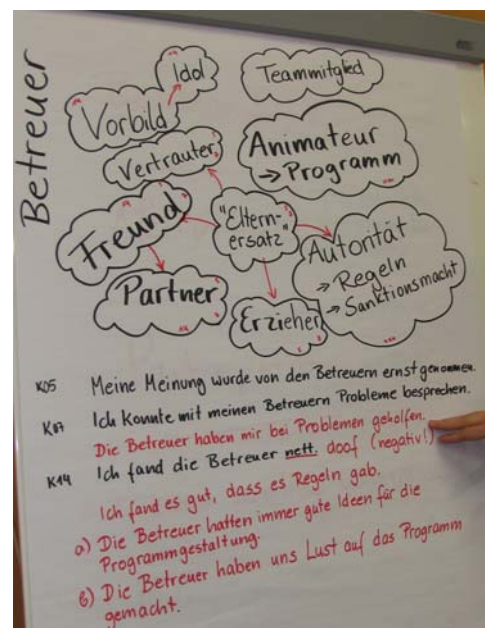 Betreuer
Idol
Teammitglied
Vorbild
Vertrauter
Animateur
→ Programm
Freund
"Eltern-
ersatz"
Autorität
→ Regeln
→ Sanktionsmacht
Partner
Erzieher
K05 Meine Meinung wurde von den Betreuern ernst genommen.
K07 Ich konnte mit meinen Betreuern Probleme besprechen.
Die Betreuer haben mir bei Problemen geholfen.
K14 Ich fand die Betreuer nett. doof (negativ!)
Ich fand es gut, dass es Regeln gab.
a) Die Betreuer hatten immer gute Ideen für die
Programmgestaltung.
b) Die Betreuer haben uns Lust auf das Programm
gemacht.